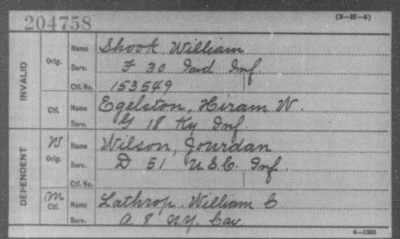 204758
(3-III-4)
INVALID
Orig.
Name Shook William
Serv. F 30 Ind Inf
Ctf. No. 153549
Ctf.
Name Egelston, Hiram W.
Serv. G 18 Ky Inf.
DEPENDENT
W
Orig.
Name Wilson, Jourdan
Serv. D 51 U.S.C. Inf.
Ctf. No.
M
Ctf.
Name Lathrop William C
Serv. A. 8 N.Y. Cav